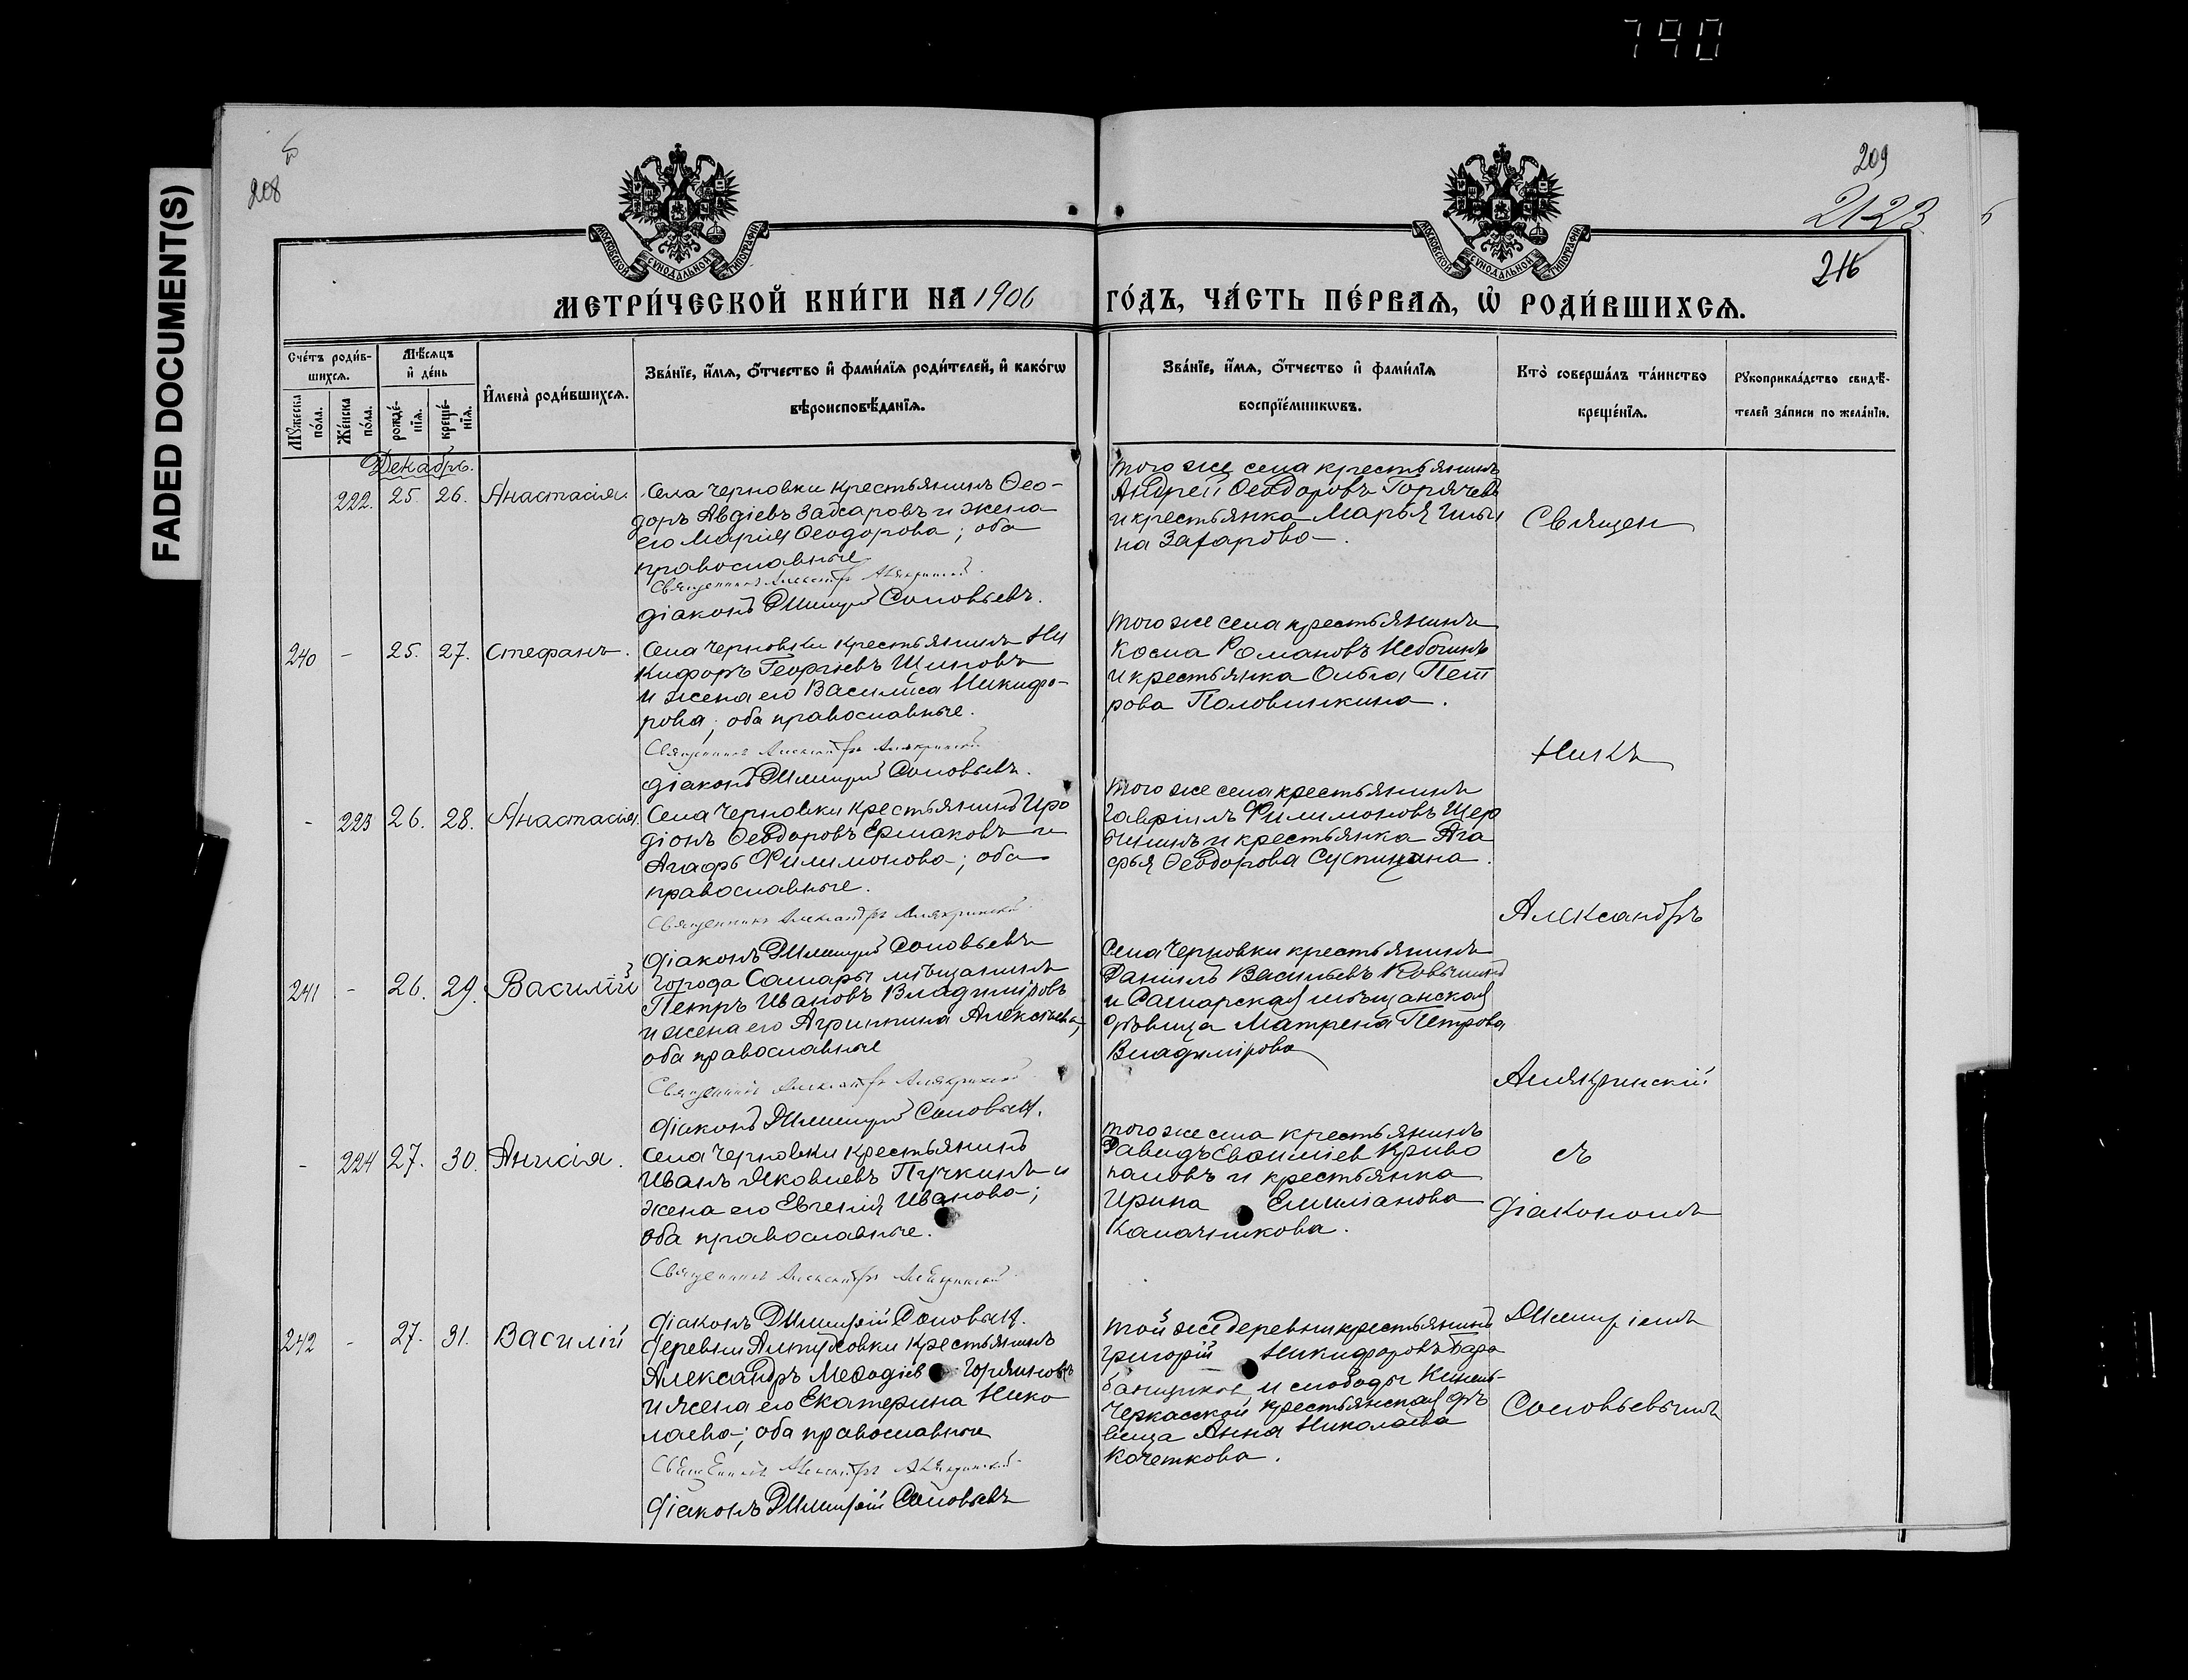 790
FADED DOCUMENT(S)
208
209
2123
216
МОСКОВСКОЙ СѴНОДАЛЬНОЙ ТИПОГРАФІИ
МОСКОВСКОЙ СѴНОДАЛЬНОЙ ТИПОГРАФІИ
МЕТРИ́ЧЕСКОЙ КНИ́ГИ НА 1906 ГО́ДЪ, ЧА́СТЬ ПЕ́РВАѦ, Ѡ҆ РОДИ́ВШИХСѦ.
Сче́тъ роди́в-
шихсѧ.
Мꙋ́жеска по́ла.
Же́нска по́ла.
Мѣ́сѧцъ
и҆ де́нь
рожде́-
нїѧ.
креще́-
нїѧ.
И҆мена̀ роди́вшихсѧ.
Зва́нїе, и҆́мѧ, ѻ҆́тчество и҆ фами́лїѧ роди́телей, и҆ како́гѡ
вѣроисповѣ́данїѧ.
Зва́нїе, и҆́мѧ, ѻ҆́тчество и҆ фами́лїѧ
воспрїе́мникѡвъ.
Кто̀ соверша́лъ та́инство
креще́нїѧ.
Рꙋкоприкла́дство свидѣ́-
телей за́писи по жела́нїю.
Декабрь.
222. 25. 26. Анастасія.
Села Черновки крестьянинъ Ѳео-
доръ Авдіевъ Захаровъ и жена
его Марія Ѳеодорова; оба
православные
Священникъ Александръ Алякринскій
діаконъ Димитрій Соловьевъ.
того же села крестьянинъ
Андрей Ѳеодоровъ Горячевъ
и крестьянка Марья Ильи
на Захарова.
240 - 25. 27. Стефанъ.
Села Черновки крестьянинъ Ни
кифоръ Георгіевъ Шиповъ
и жена его Василиса Никифо-
рова; оба православные.
Священникъ Александръ Алякринскій
діаконъ Димитрій Соловьевъ.
того же села крестьянинъ
Косма Романовъ
и крестьянка Ольга Пет
рова Половинкина.
- 223 26. 28. Анастасія.
Села Черновки крестьянинъ Иро
діонъ Ѳеодоровъ Ермаковъ и
Агафь Филимонова; оба
православные.
Священникъ Александръ Алякринскій
діаконъ Димитрій Соловьевъ
того же села крестьянинъ
Гавріилъ Филимоновъ Щер
бининъ и крестьянка Ага
фья Ѳеодорова
241 - 26. 29. Василій
Города Самары мѣщанинъ
Петръ Ивановъ Владиміровъ
и жена его Агриппина Алексѣева;
оба православные
Священникъ Александръ Алякринскій
діаконъ Димитрій Соловьевъ.
Села Черновки крестьянинъ
Даніилъ Васильевъ
и Самарская мѣщанская
дѣвица Матрена Петрова
Владимірова
- 224 27. 30. Анисія.
Села Черновки крестьянинъ
Иванъ Яковлевъ Пучкинъ и
жена его Евгенія Иванова;
оба православные.
Священникъ Александръ Алякринскій
діаконъ Димитрій Соловьевъ.
того же села крестьянинъ
Давидъ Криво
паловъ и крестьянка
Ирина Емиліанова
Калачникова.
242 - 27. 31. Василій
деревни Алтуховки крестьянинъ
Александръ Меѳодіев Горяиновъ
и жена его Екатерина Нико
лаева; оба православные
Священникъ Александръ Алякринскій
діаконъ Димитрій Соловьевъ
той же деревни крестьянинъ
Григорій Никифоровъ Бара
банщиков и слободы Кинель-
Черкасской крестьянская дѣ
вица Анна Николаева
Кочеткова.
Священ
никъ
Александръ
Алякринскій
съ
діакономъ
Димитріемъ
Соловьевымъ